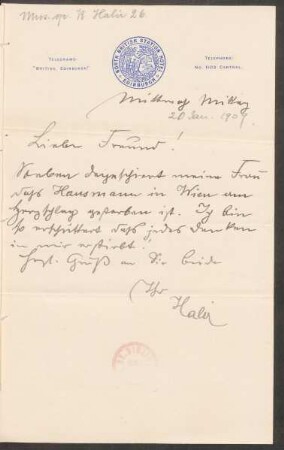 Mus. ep. K Halir 26
TELEGRAMS: "BRITISH, EDINBURGH."
NORTH BRITISH STATION HOTEL EDINBURGH
TELEPHONE: CENTRAL.
Mittwoch Mittag
20 Jan. 1909.
Lieber Freund!
Soeben depeschiert meine Frau
dass Hausmann in Wien am
Herzschlag gestorben ist. Ich bin
so erschüttert dass jedes Denken
in mir erstirbt!
Herzl. Gruß an Sie beide
Ihr
Halir